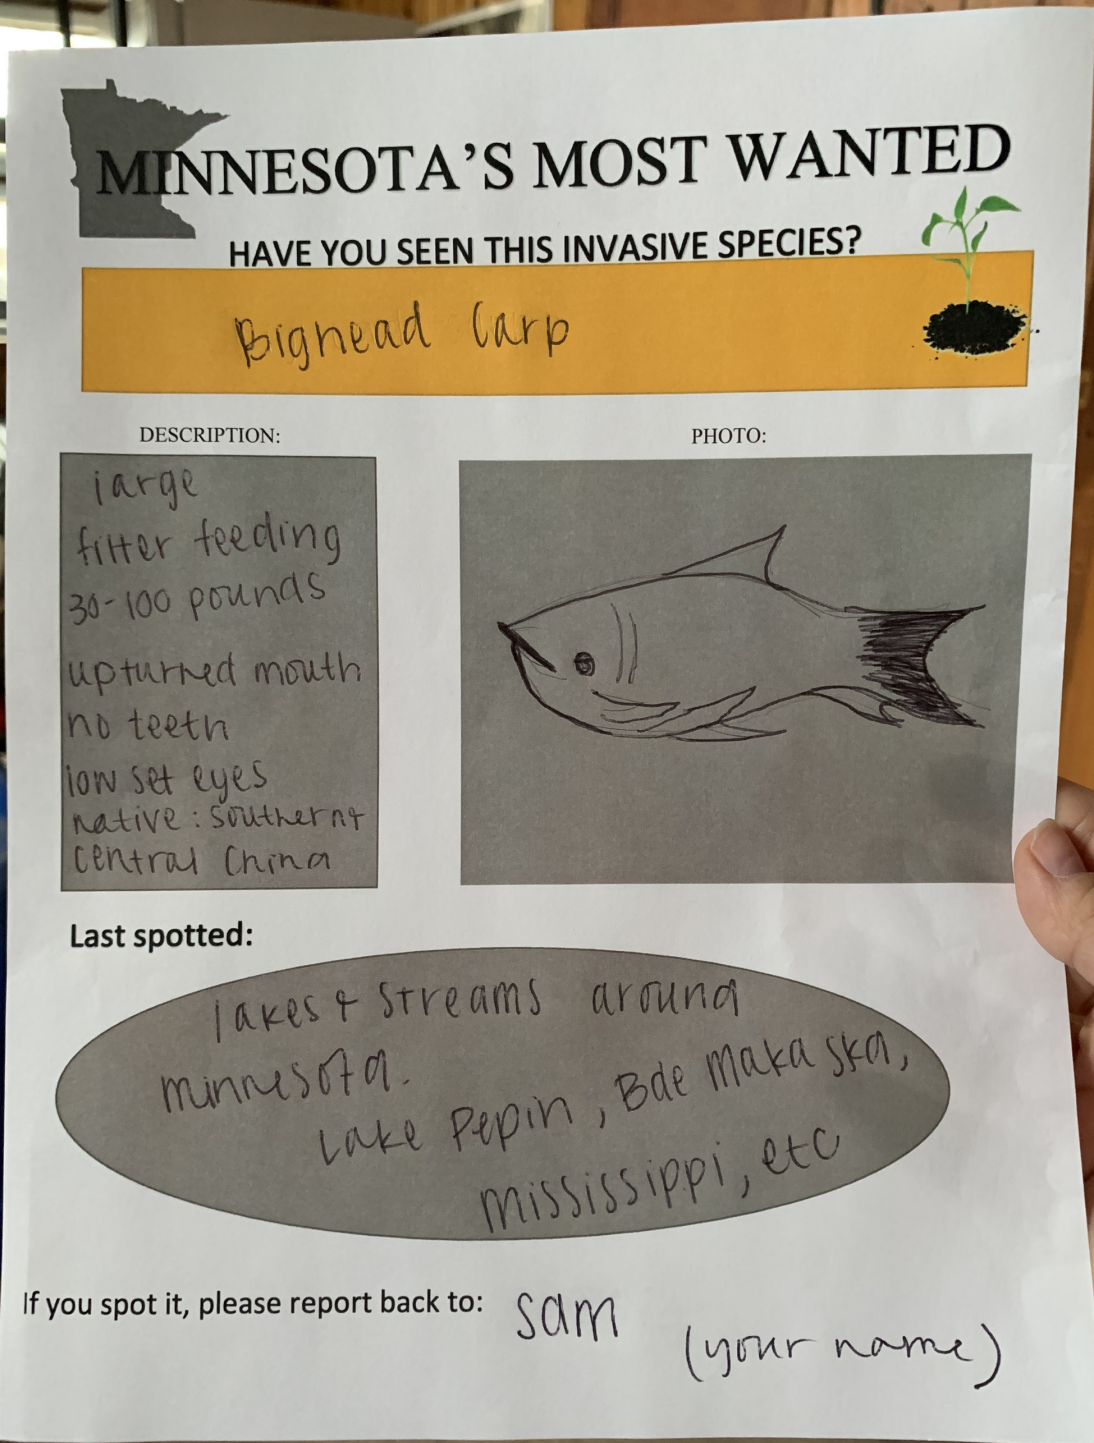 MINNESOTA'S MOST WANTED
HAVE YOU SEEN THIS INVASIVE SPECIES?
Bighead Carp
DESCRIPTION:
large
filter feeding
30-100 pounds
upturned mouth
no teeth
low set eyes
native: southern &
central China
PHOTO:
Last spotted:
lakes & streams around
minnesota.
Lake Pepin, Bde Maka ska,
mississippi, etc
If you spot it, please report back to: sam
(your name)